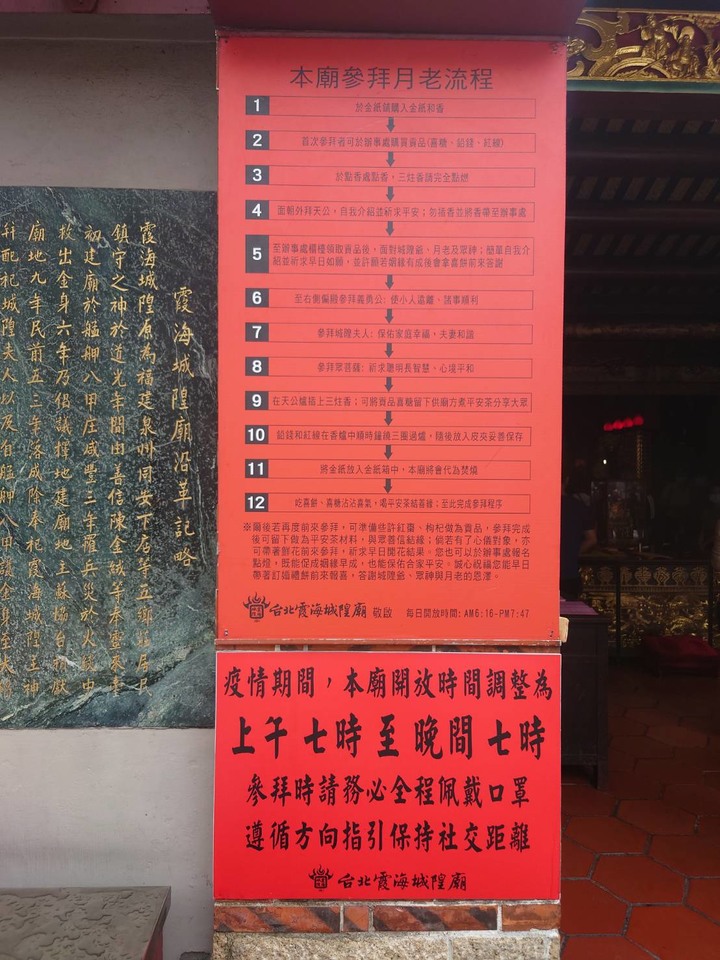 本廟參拜月老流程
1 於金紙舖購入金紙和香
2 首次參拜者可於辦事處購買貢品(喜糖、鉛錢、紅線)
3 於點香處點香，三炷香請完全點燃
4 面朝外拜天公，自我介紹並祈求平安；勿插香並將香帶至辦事處
5 至辦事處櫃檯領取貢品後，面對城隍爺、月老及眾神；簡單自我介
紹並祈求早日如願，並許願若姻緣有成後會拿喜餅前來答謝
6 至右側偏殿參拜義勇公: 使小人遠離、諸事順利
7 參拜城隍夫人: 保佑家庭幸福，夫妻和諧
8 參拜眾菩薩: 祈求聰明長智慧、心境平和
9 在天公爐插上三炷香；可將貢品喜糖留下供廟方煮平安茶分享大眾
10 鉛錢和紅線在香爐中順時鐘繞三圈過爐，隨後放入皮夾妥善保存
11 將金紙放入金紙箱中，本廟將會代為焚燒
12 吃喜餅、喜糖沾沾喜氣，喝平安茶結善緣；至此完成參拜程序
※爾後若再度前來參拜，可準備些許紅棗、枸杞做為貢品，參拜完成
後可留下做為平安茶材料，與眾善信結緣；倘若有了心儀對象，亦
可帶著鮮花前來參拜，祈求早日開花結果。您也可以於辦事處報名
點燈，既能促成姻緣早成，也能保佑合家平安。誠心祝福您能早日
帶著訂婚禮餅前來報喜，答謝城隍爺、眾神與月老的恩澤。
台北霞海城隍廟 敬啟 每日開放時間: AM6:16-PM7:47
疫情期間，本廟開放時間調整為
上午七時至晚間七時
參拜時請務必全程佩戴口罩
遵循方向指引保持社交距離
台北霞海城隍廟
霞海城隍廟沿革記略
霞海城隍原為福建泉州同安下店等五鄉莊居民
鎮守之神於道光年間由善信陳金絨等奉靈來臺
初建廟於艋舺八甲庄咸豐三年罹兵災於火燄中
救出金身六年乃倡議擇地建廟地主蘇
廟地九年民前五三年落成除奉祀霞海城隍王神